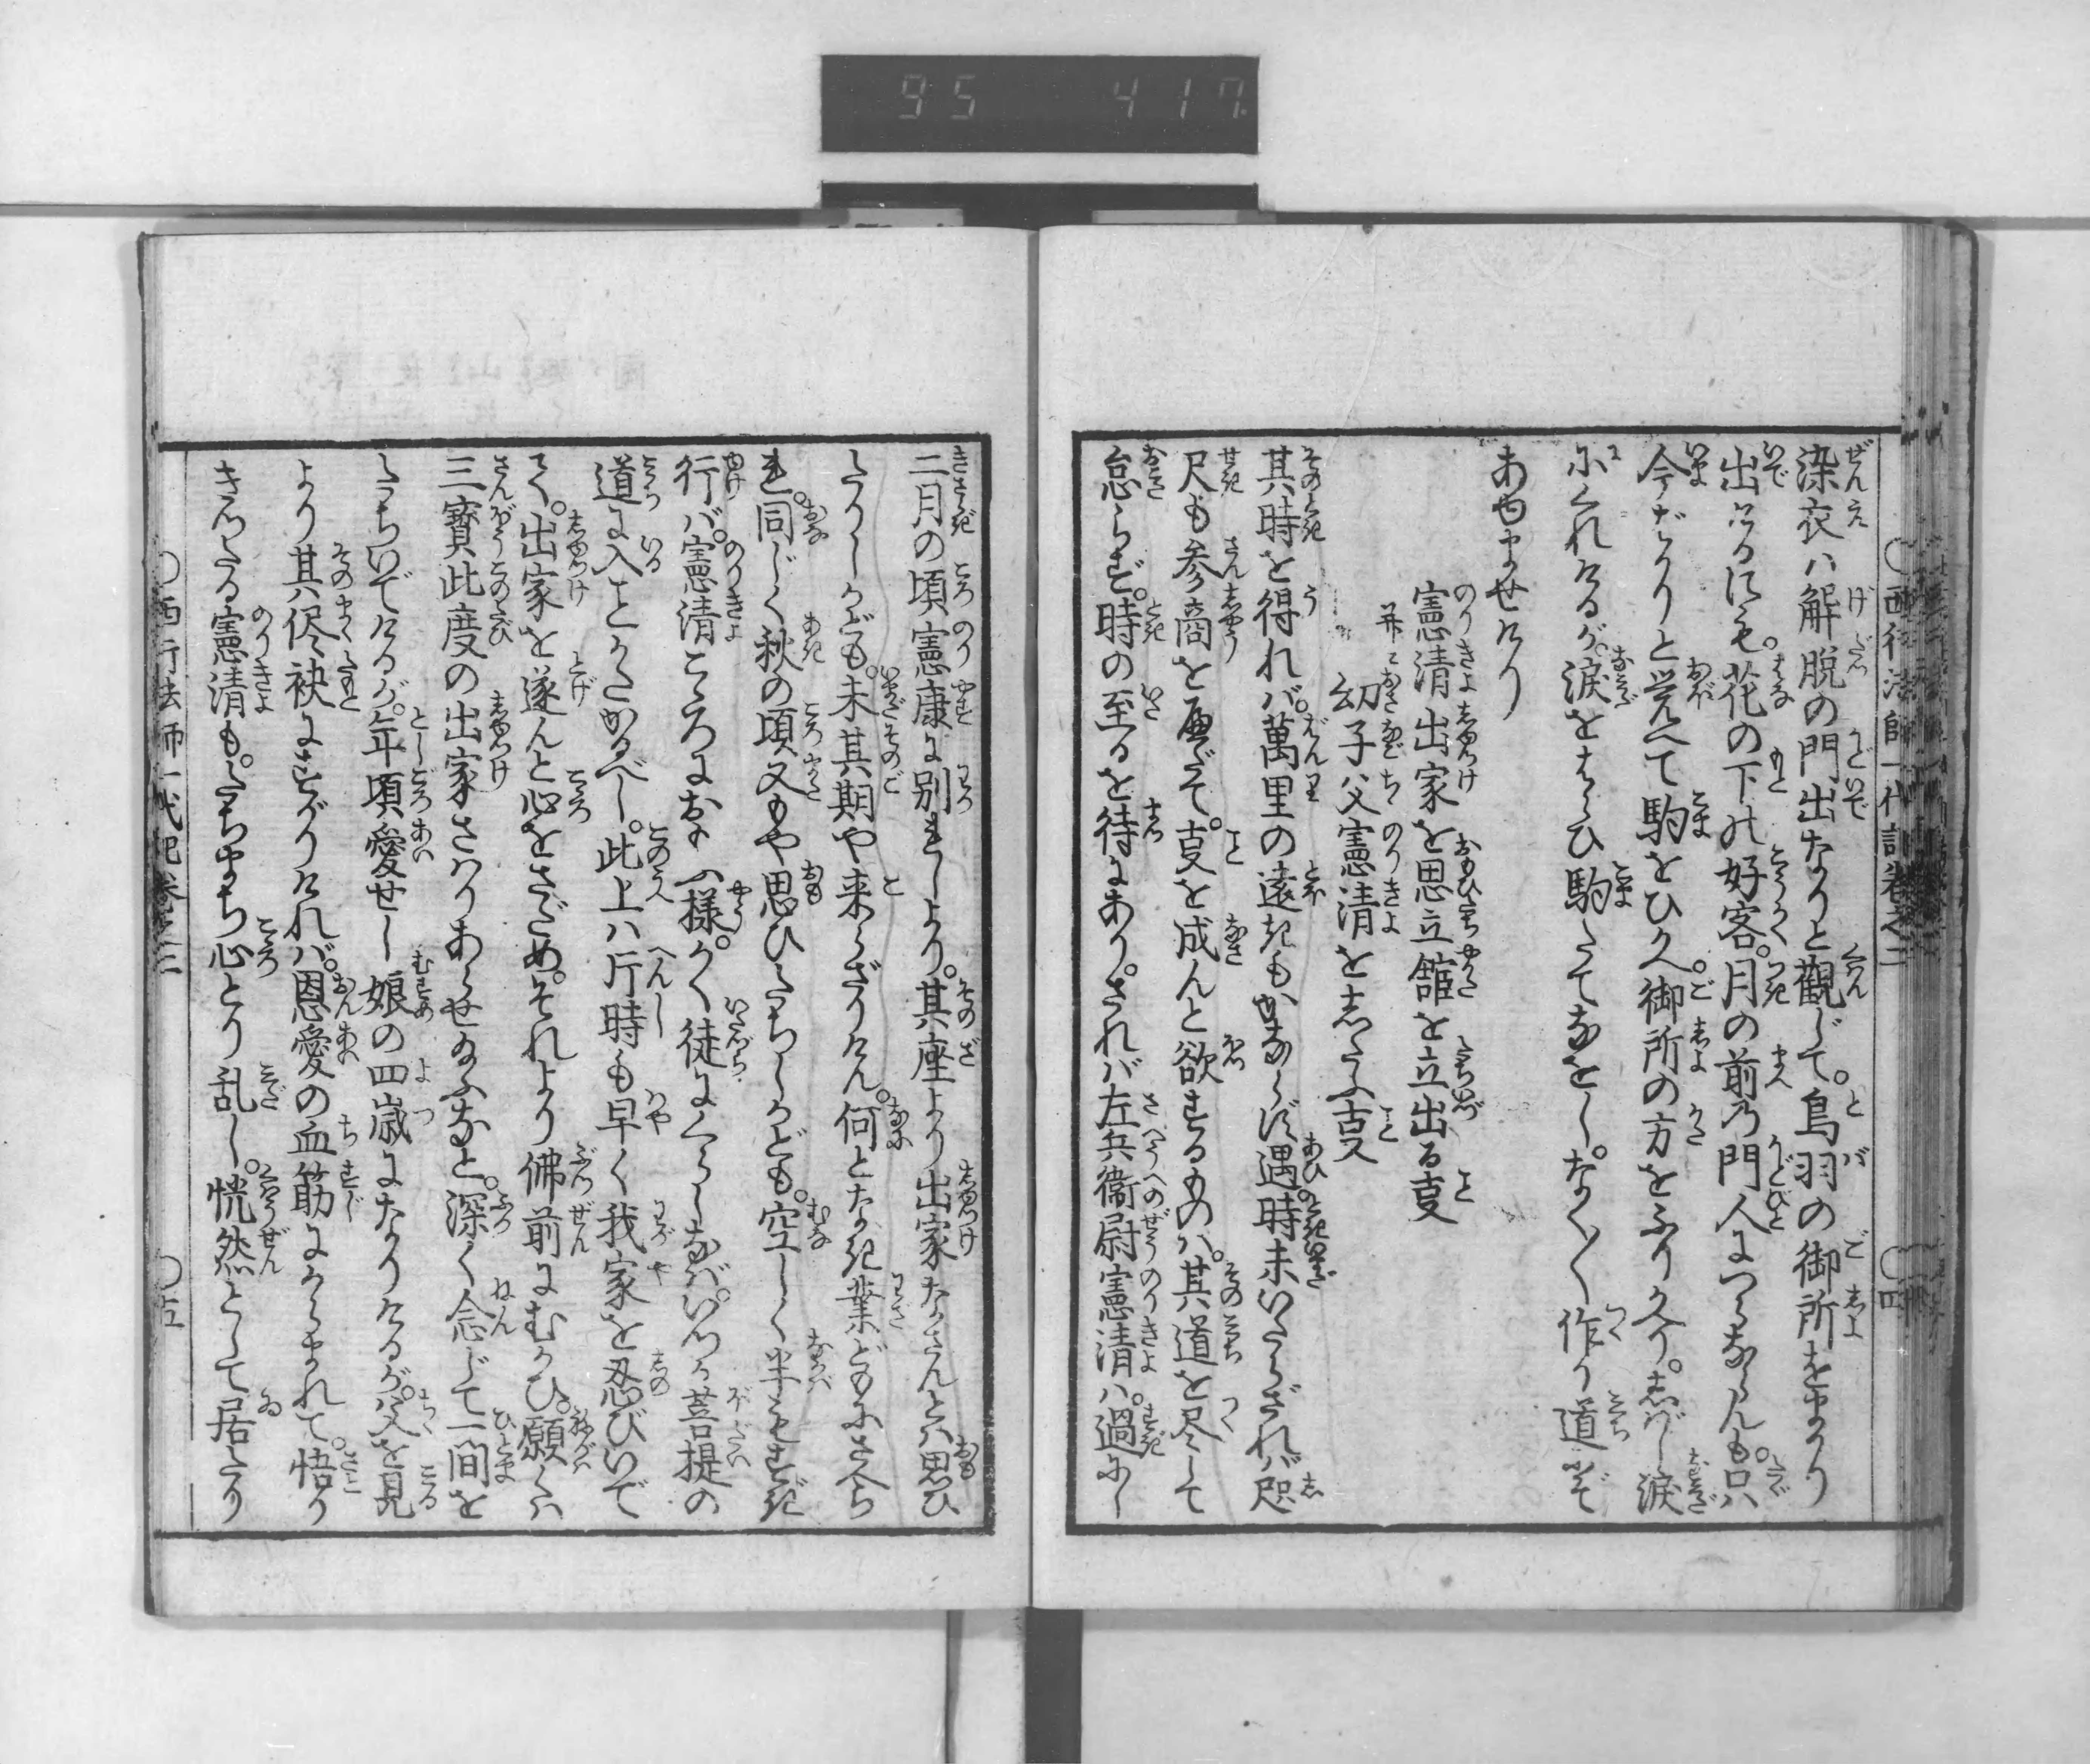 95 417
西行法師一代記巻之二 四
染衣ハ解脱の門出なりと觀じて。鳥羽の御所をまかり
出けるにも。花の下の好客。月の前の門人につらならんも。只
今ばかりと覚へて駒をひかへ。御所の方をふりかへり。しばし涙
にくれけるが。涙をはらひ駒たてなをし。なく〳〵作り道まで
あゆませけり
憲清出家を思立舘を立出る叓
并ニ幼子父憲清をしたふ叓
其時を得れバ。萬里の遠きもかならず遇。時未いたらざれバ咫
尺も参商を隔て。叓を成んと欲するものハ。其道を尽して
怠らず。時の至るを待にあり。されバ左兵衞尉憲清ハ。過にし
二月の頃憲康に別れしより。其座より出家なさんとハ思ひ
たりしかども。未其期や来らざりけん。何となき業どもにさへら
れ。同じく秋の頃又もや思ひたちしかども。空しく半もすぎ
行バ。憲清こゝろにおもふ様。かく徒にくらしなバ。いつか菩提の
道に入ことかたかるべし。此上ハ片時も早く我家を忍びいで
て。出家を遂んと心をさだめ。それより佛前にむかひ。願くハ
三寳此度の出家さハりあらせ給ふなと。深く念じて一間を
たちいでけるが。年頃愛せし娘の四歳になりけるが。父を見
より其侭袂にすがりけれバ。恩愛の血筋にからまれて。悟り
きつたる憲清も。たちまち心とり乱し。恍然として居たり
西行法師一代記巻之二 五